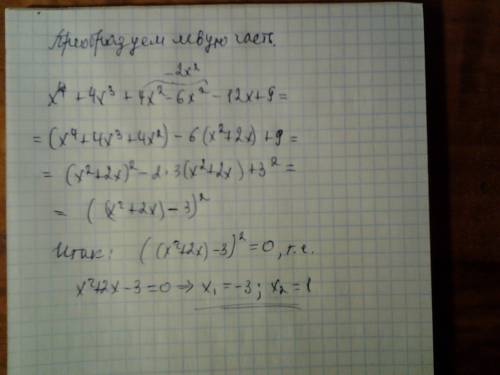 Преобразуем левую часть.
-2x²
x⁴ + 4x³ + 4x² - 6x² - 12x + 9 =
= (x⁴ + 4x³ + 4x²) - 6(x² + 2x) + 9 =
= (x² + 2x)² - 2 · 3(x² + 2x) + 3² =
= ((x² + 2x) - 3)²
Итак: ((x² + 2x) - 3)² = 0, т.е.
x² + 2x - 3 = 0 ⇒ x₁ = -3; x₂ = 1